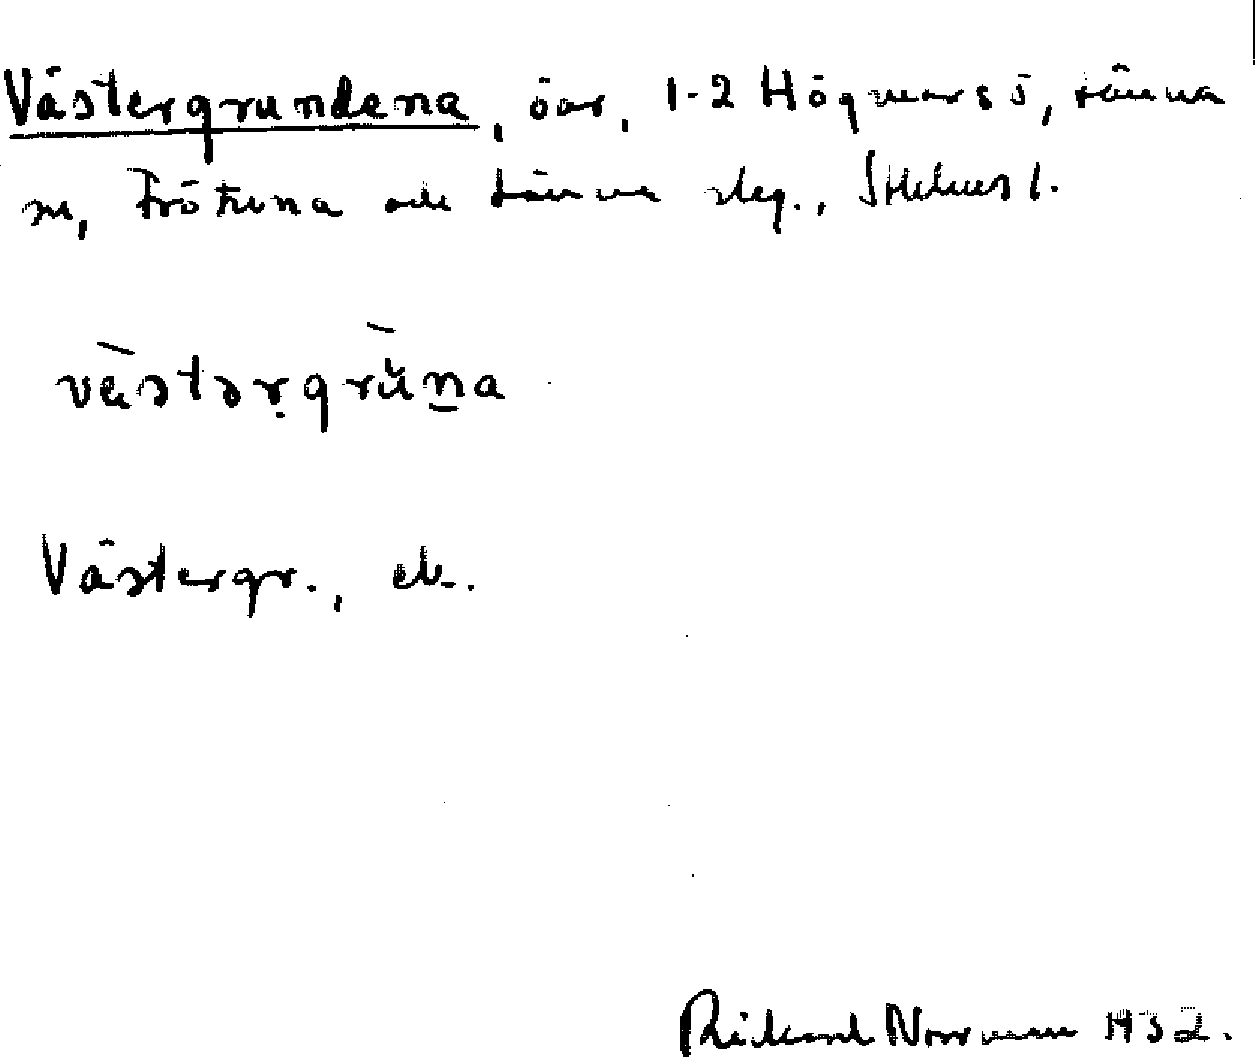 Västergrundena, öar, 1-2 Högmarsö, Länna
sn, Frötuna och Länna skg., Sthlms l.
Västergr., ek.
Rikard Norrman 1932.